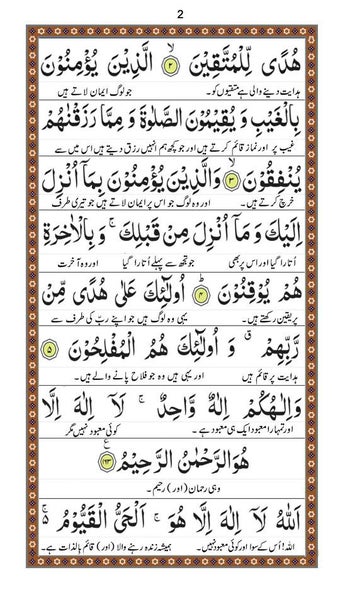 2
هُدًى لِّلْمُتَّقِيْنَ ۙ﴿۲﴾ الَّذِيْنَ يُؤْمِنُوْنَ
ہدایت دینے والی ہے متقیوں کو۔ جو لوگ ایمان لاتے ہیں
بِالْغَيْبِ وَ يُقِيْمُوْنَ الصَّلٰوةَ وَ مِمَّا رَزَقْنٰهُمْ
غیب پر اور نماز قائم کرتے ہیں اور جو کچھ ہم انہیں رزق دیتے ہیں اس میں سے
يُنْفِقُوْنَ ۙ﴿۳﴾ وَالَّذِيْنَ يُؤْمِنُوْنَ بِمَآ اُنْزِلَ
خرچ کرتے ہیں۔ اور وہ لوگ جو اس پر ایمان لاتے ہیں جو تیری طرف
اِلَيْكَ وَ مَآ اُنْزِلَ مِنْ قَبْلِكَ ۚ وَ بِالْاٰخِرَةِ
اُتارا گیا اور اس پر بھی جو تجھ سے پہلے اُتارا گیا اور وہ آخرت
هُمْ يُوْقِنُوْنَ ؕ﴿۴﴾ اُولٰٓئِكَ عَلٰى هُدًى مِّنْ
پر یقین رکھتے ہیں۔ یہی وہ لوگ ہیں جو اپنے ربّ کی طرف سے
رَّبِّهِمْ ٭ وَ اُولٰٓئِكَ هُمُ الْمُفْلِحُوْنَ ﴿۵﴾
ہدایت پر قائم ہیں اور یہی ہیں وہ جو فلاح پانے والے ہیں۔
وَ اِلٰهُكُمْ اِلٰهٌ وَّاحِدٌ ۚ لَآ اِلٰهَ اِلَّا
اور تمہارا معبود ایک ہی معبود ہے۔ کوئی معبود نہیں مگر
هُوَ الرَّحْمٰنُ الرَّحِيْمُ ﴿۱۶۳﴾ ع
وہی رحمان (اور) رحیم۔
اَللّٰهُ لَآ اِلٰهَ اِلَّا هُوَ ۚ اَلْحَيُّ الْقَيُّوْمُ ۬ۚ
اللہ! اُس کے سوا اور کوئی معبود نہیں۔ ہمیشہ زندہ رہنے والا (اور) قائم بالذات ہے۔